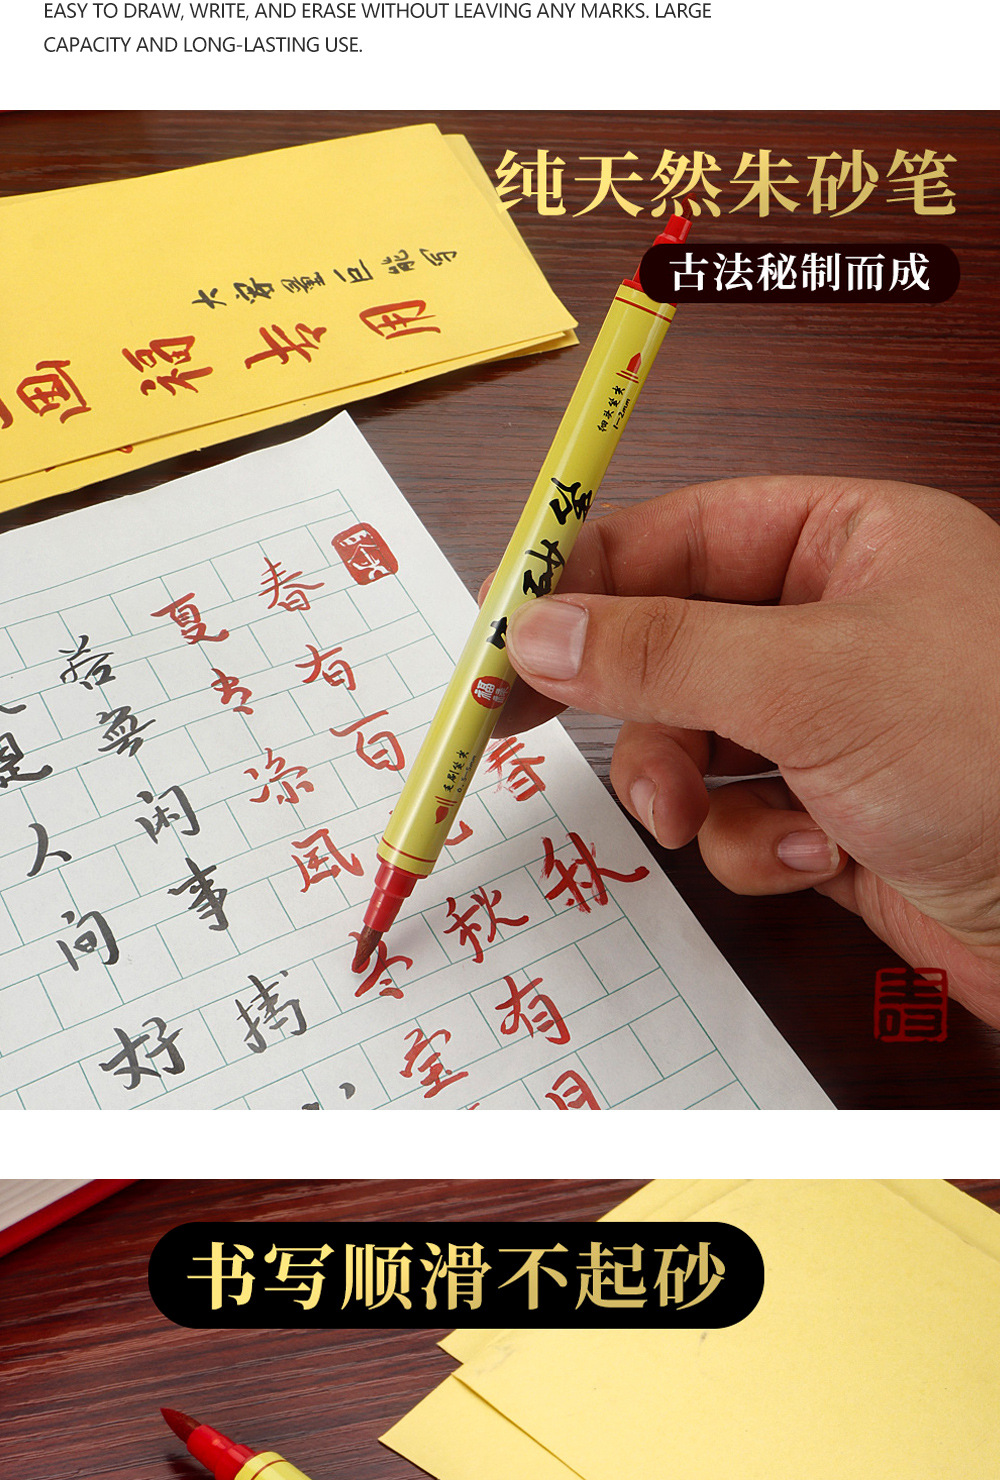 EASY TO DRAW, WRITE, AND ERASE WITHOUT LEAVING ANY MARKS. LARGE
CAPACITY AND LONG-LASTING USE.
纯天然朱砂笔
古法秘制而成
大容量
福
细头笔尖
1-2mm
春有百
秋有月
夏
凉风
冬
若无闲事挂
人间好
春
秋
书写顺滑不起砂